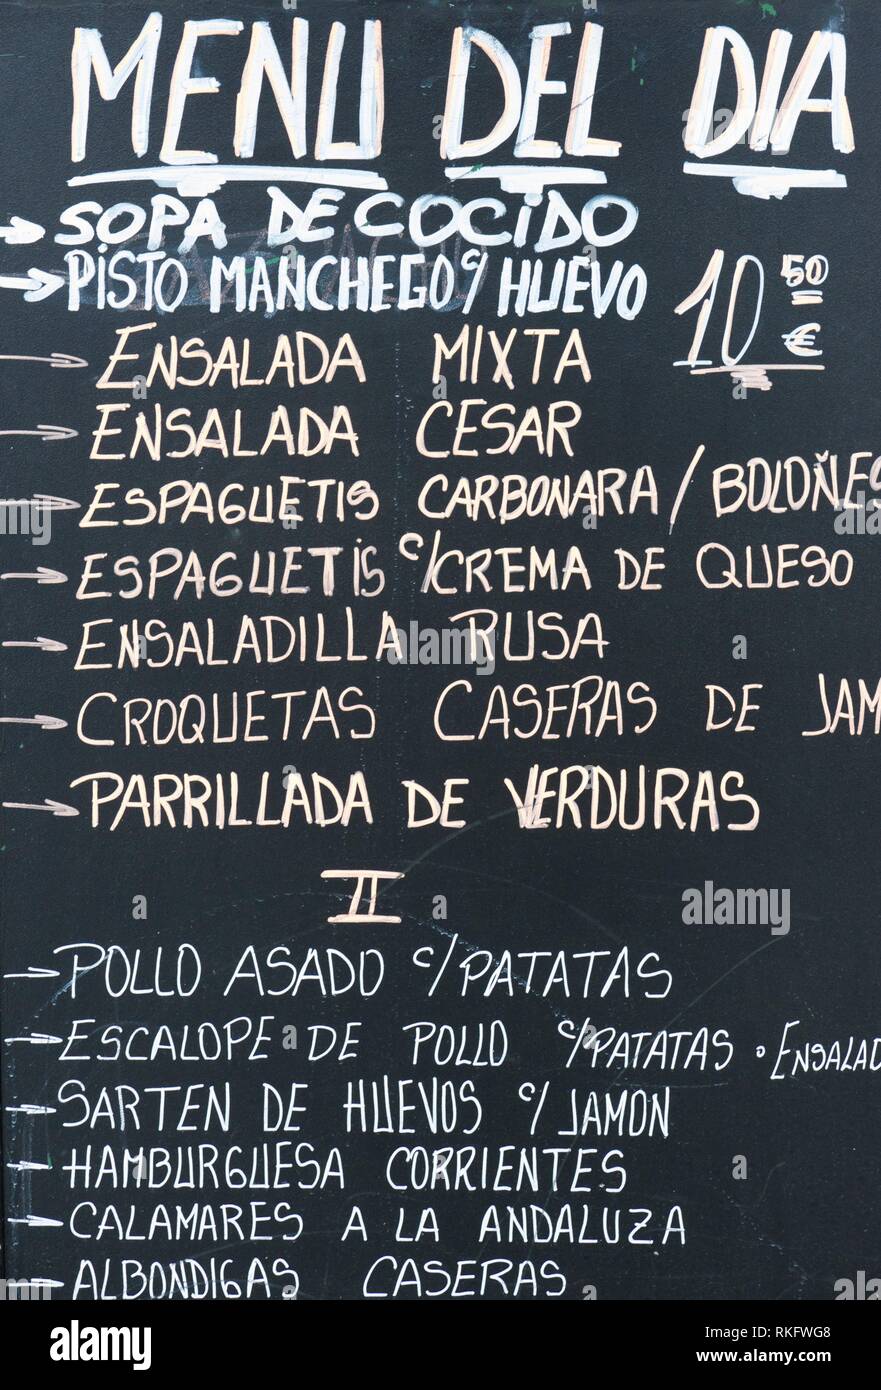 MENU DEL DIA
SOPA DE COCiDO
PiSTO MANCHEGO c/ HUEVO
10 50 €
ENSALADA MIXTA
ENSALADA CESAR
ESPAGUETIS CARBONARA / BOLOÑES
ESPAGUETiS c/CREMA DE QUESO
ENSALADILLA RUSA
CROQUETAS CASERAS DE JAM
PARRILLADA DE VERDURAS
II
POLLO ASADO c/PATATAS
ESCALOPE DE POLLO c/PATATAS o ENSALAD
SARTEN DE HUEVOS c/ JAMON
HAMBURGUESA CORRIENTES
CALAMARES A LA ANDALUZA
ALBONDIGAS CASERAS
alamy
Image ID: RKFWG8
www.alamy.com